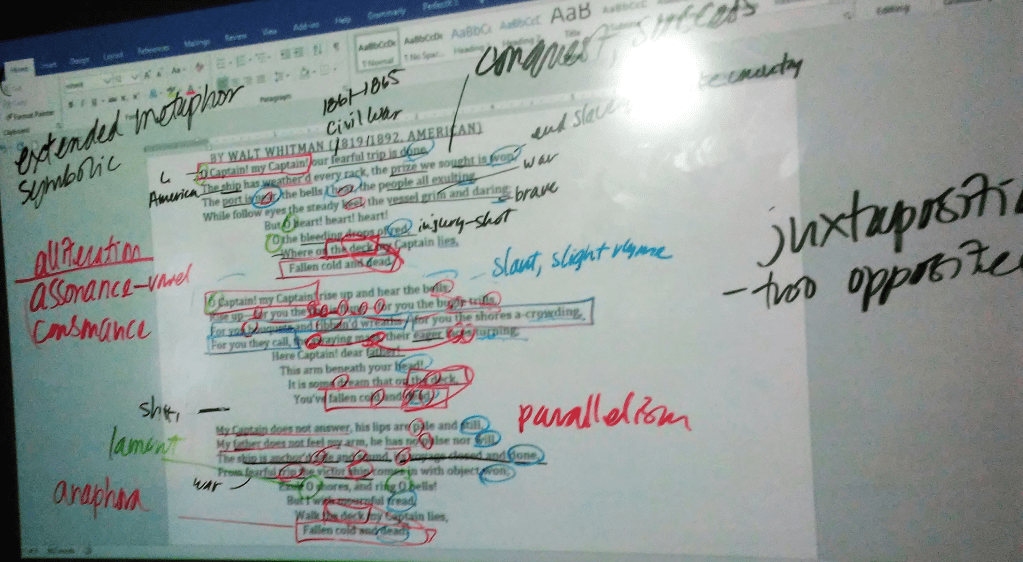 Insert Design Layout References Mailings Review View Add-ins Help Grammarly
Paragraph
AaBbCcDc AaBbCcDc AaBbCc AaBbCcC AaB
¶ Normal ¶ No Spac... Heading Title
Editing
Format Painter
Clipboard
conquest, success
extended metaphor
symbolic
1861-1865
Civil War
country
end
BY WALT WHITMAN (1819/1892, AMERICAN)
O Captain! my Captain! our fearful trip is done,
America
The ship has weather'd every rack, the prize we sought is won,
war
The port is the bells I the people all exulting,
While follow eyes the steady keel, the vessel grim and daring;
brave
But O heart! heart! heart!
O the bleeding drops of red,
injury-shot
Where on the deck my Captain lies,
Fallen cold and dead.
slant, slight rhyme
alliteration
assonance-vowel
consonance
juxtaposition
- two opposite
O Captain! my Captain! rise up and hear the bells;
Rise up for you the for you the bugle trills,
For you bouquets and ribbon'd wreaths for you the shores a-crowding,
For you they call, the swaying mass, their eager faces turning;
Here Captain! dear father!
This arm beneath your head!
It is some dream that on the deck,
You've fallen cold and dead.
ship,
My Captain does not answer, his lips are pale and still,
My father does not feel my arm, he has no pulse nor will,
The ship is anchor'd safe and sound, its voyage closed and done,
From fearful trip the victor ship comes in with object won;
Exult O shores, and ring O bells!
But I with mournful tread,
Walk the deck my Captain lies,
Fallen cold and dead.
parallelism
lament
war
anaphora